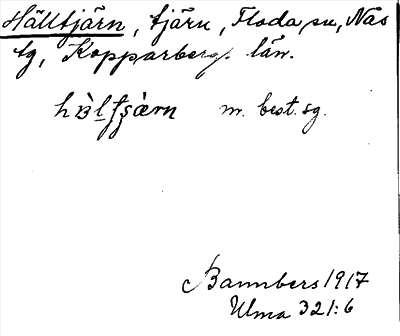 Hälltjärn, tjärn, Floda sn, Näs
tg, Kopparbergs län.
m. best. sg.
Bannbers 1917
Ulma 321:6